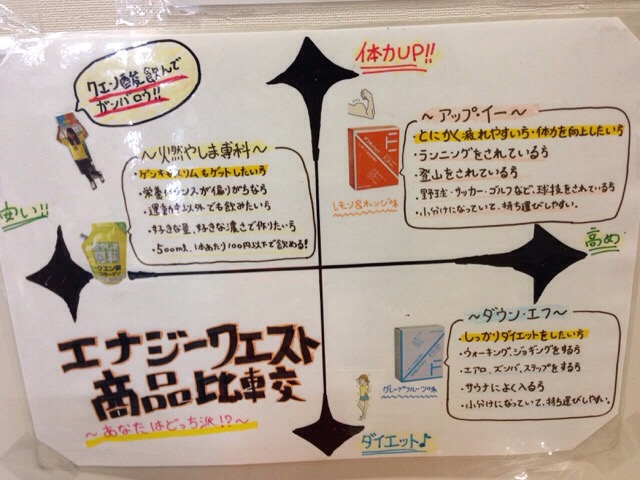 体力UP!!
クエン酸飲んで
ガンバロウ!!
～アップ・イー～
・とにかく疲れやすい方・体力を向上したい方
・ランニングをされている方
・登山をされている方
・野球・サッカー・ゴルフなど、球技をされている方
・小分けになっていて、持ち運びしやすい。
レモン&オレンジ味
～燃やしま専科～
・ゲンキもスリムもゲットしたい方
・栄養バランスが偏りがちな方
・運動時以外でも飲みたい方
・好きな量、好きな濃さで作りたい方
・500ml、1本あたり100円以下で飲める!
安い!!
高め
エナジークエスト
商品比較
～あなたはどっち派!?～
～ダウン・エフ～
・しっかりダイエットをしたい方
・ウォーキング、ジョギングをする方
・エアロ、ズンバ、ステップをする方
・サウナによく入る方
・小分けになっていて、持ち運びしやすい。
グレープフルーツ味
ダイエット♪